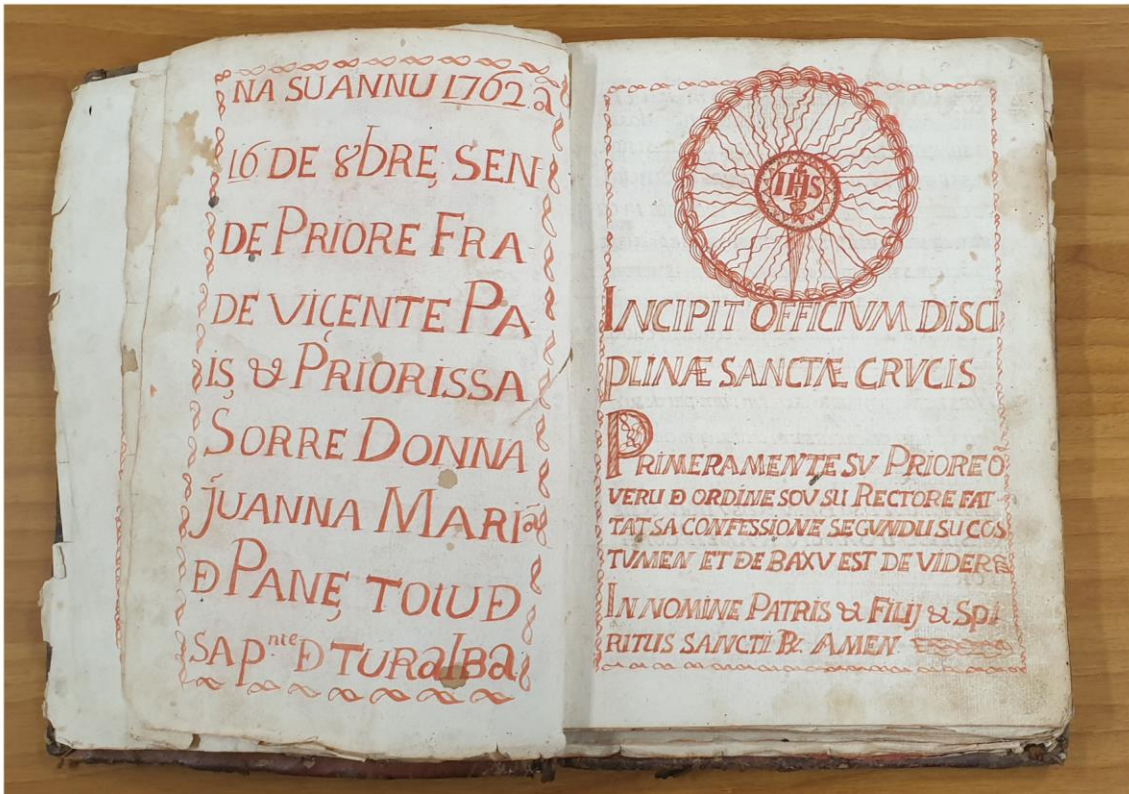 NA SU ANNU 1762. ã
16 DE 8bRE, SEN-
DE PRIORE FRA-
DE VIÇENTE PA-
IS & PRIORISSA
SORRE DONNA
JUANNA MARIã
Đ PANE, TOIU Đ
SA Pnte Đ TURalBa
IHS
INCIPIT OFFICIVM DISCI
PLINÆ SANCTÆ CRVCIS
PRIMERAMENTE SV PRIORE Ô
VERU Đ ORDINE SOU SU RECTORE FAT-
TAT SA CONFESSIONE SEGUNDU SU COS
TUMEN ET DE BAXU EST DE VIDERE
IN NOMINE PATRIS & FILIJ & SPI
RITUS SANCTI R. AMEN